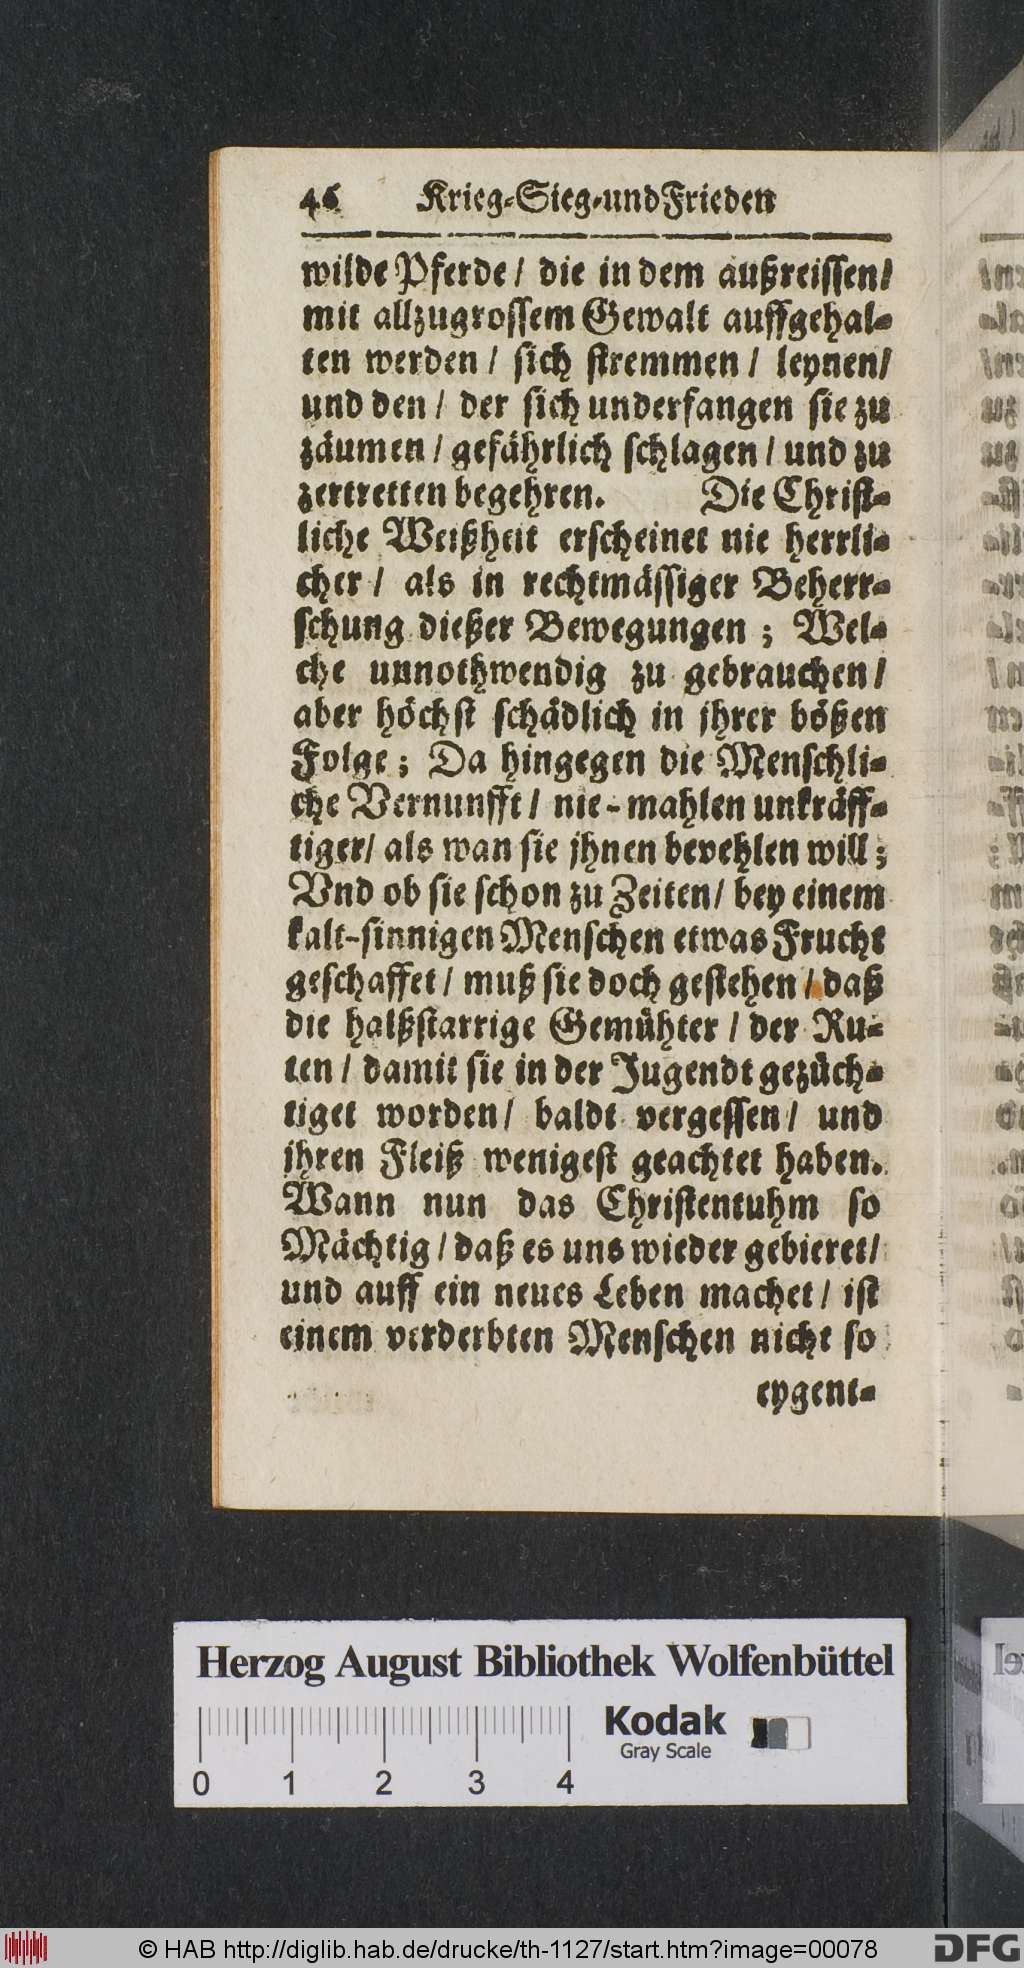 46 Krieg-Sieg-und Frieden
wilde Pferde / die in dem außreissen /
mit allzugrossem Gewalt auffgehal-
ten werden / sich stremmen / leynen /
und den / der sich underfangen sie zu
zäumen / gefährlich schlagen / und zu
zertretten begehren. Die Christ-
liche Weißheit erscheinet nie herrli-
cher / als in rechtmässiger Beherr-
schung dießer Bewegungen ; Wel-
che unnothwendig zu gebrauchen /
aber höchst schädlich in jhrer bößen
Folge ; Da hingegen die Menschli-
che Vernunfft / nie-mahlen unkräff-
tiger / als wan sie jhnen bevehlen will ;
Vnd ob sie schon zu Zeiten / bey einem
kalt-sinnigen Menschen etwas Frucht
geschaffet / muß sie doch gestehen / daß
die halßstarrige Gemühter / der Ru-
ten / damit sie in der Jugendt gezüch-
tiget worden / baldt vergessen / und
jhren Fleiß wenigest geachtet haben.
Wann nun das Christentuhm so
Mächtig / daß es uns wieder gebieret /
und auff ein neues Leben machet / ist
einem verderbten Menschen nicht so
eygent-
Herzog August Bibliothek Wolfenbüttel
Kodak
Gray Scale
0 1 2 3 4
© HAB http://diglib.hab.de/drucke/th-1127/start.htm?image=00078
DFG